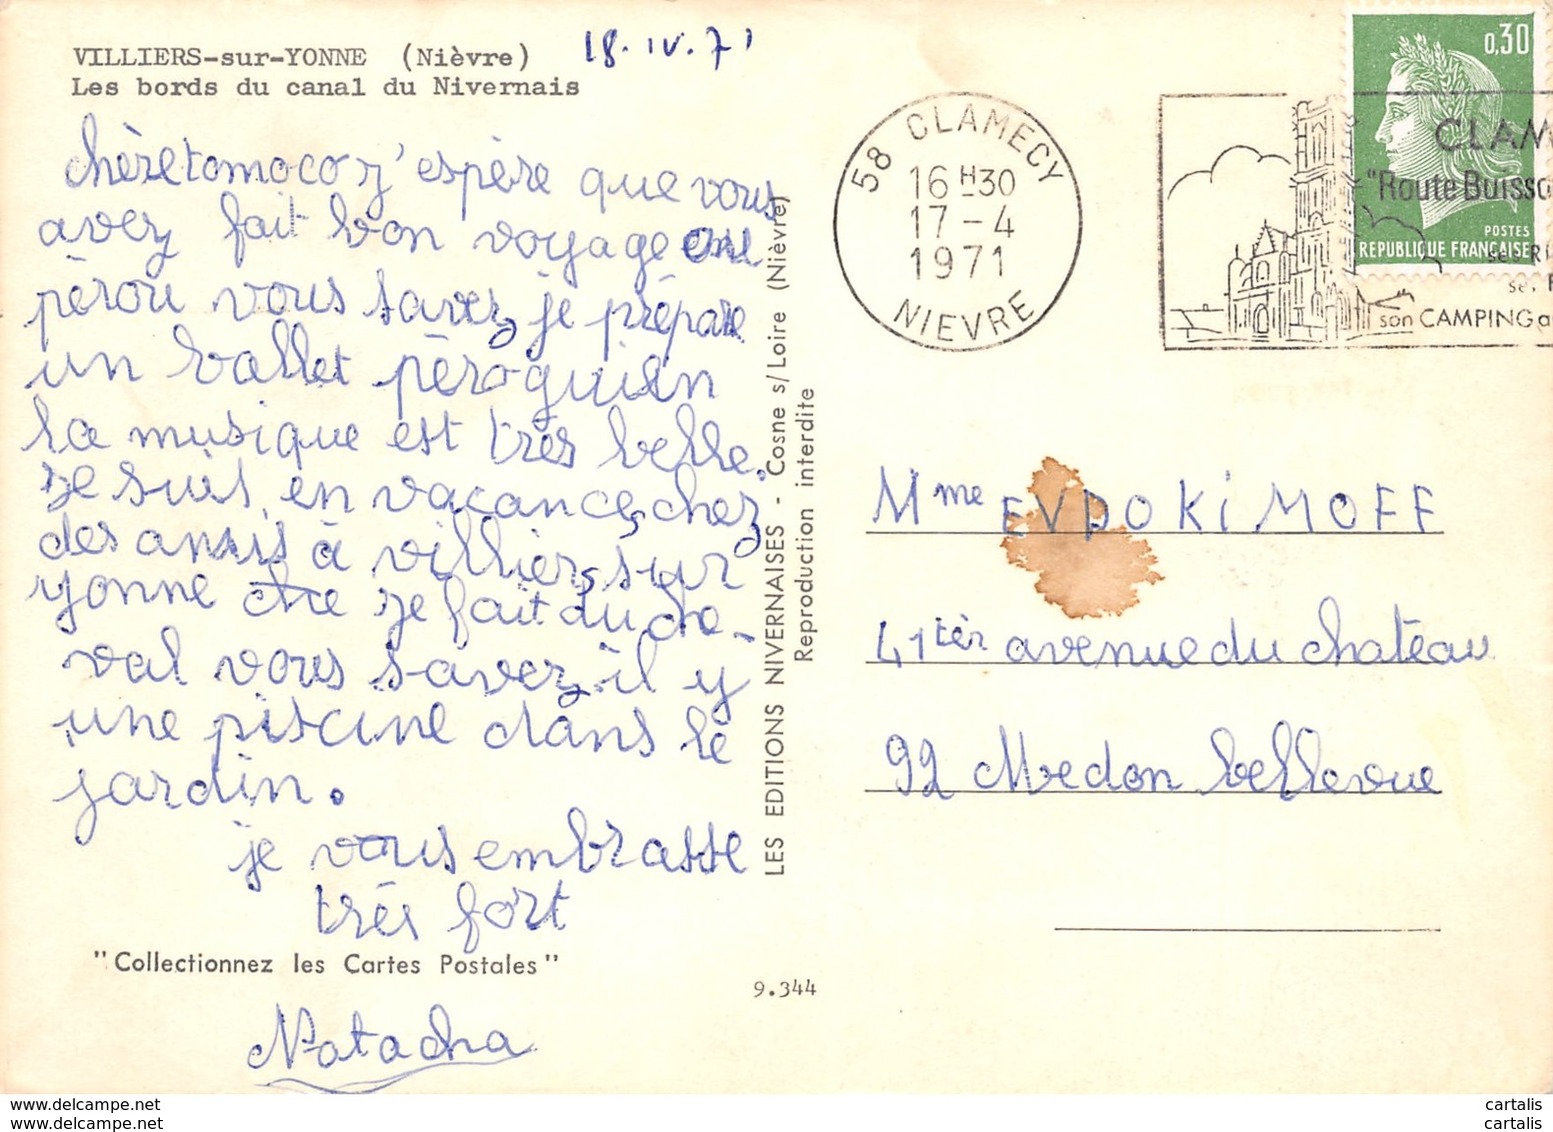 VILLIERS-sur-YONNE (Nièvre)
Les bords du canal du Nivernais
18.IV.71
chèretomoco j'espère que vous
avez fait bon voyage au
pérou vous savez je prépare
un ballet péroguien
la musique est très belle.
Je suis en vacance chez
des amis à villiers sur
yonne Je fait du che-
val vous savez il y
une piscine dans le
jardin.
je vous embrasse
très fort
"Collectionnez les Cartes Postales"
Natacha
9.344
LES EDITIONS NIVERNAISES - Cosne s/Loire (Nièvre)
Reproduction interdite
58 CLAMECY
16 H30
17-4
1971
NIEVRE
0,30
POSTES
REPUBLIQUE FRANÇAISE
CLAM
"Route Buisso
son CAMPING a
Mme EVDOKiMOFF
41 tèr avenue du chateau
92 Medon bellevue
cartalis
www.cartalis.com
cartalis
www.cartalis.com